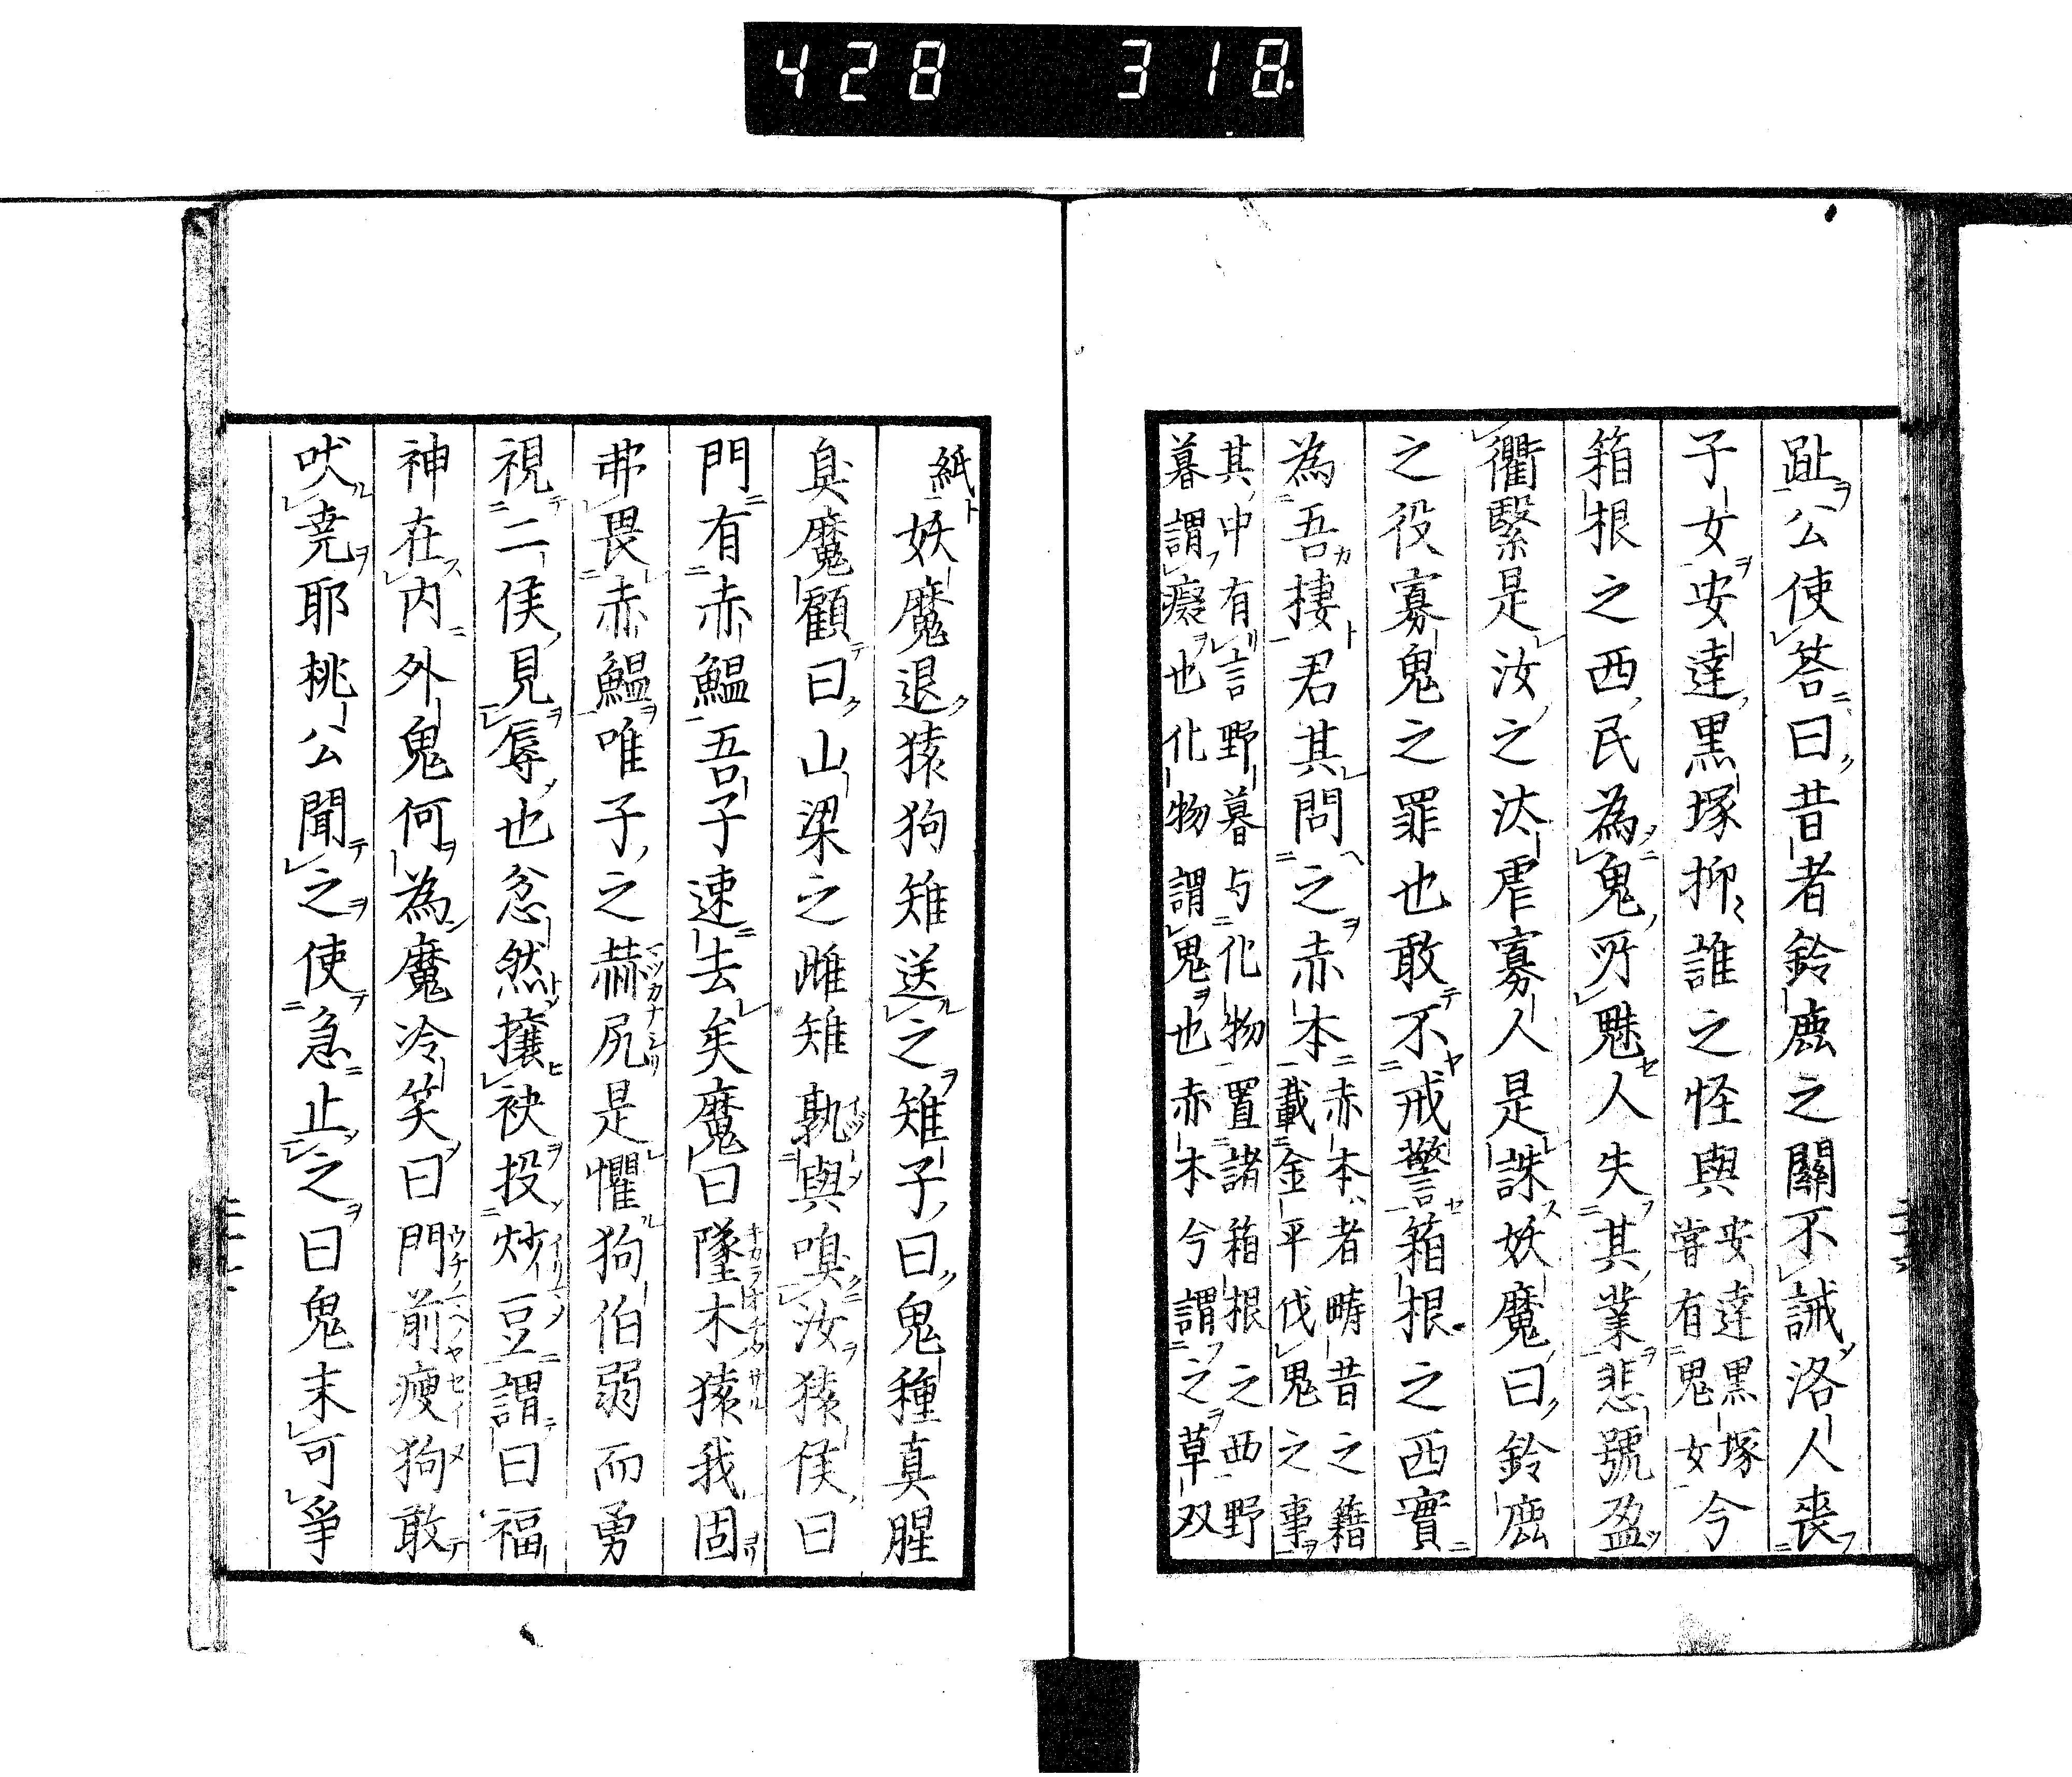 428 318
趾公使荅曰昔者鈴鹿之關不誡洛人喪
子女安達黒塚抑誰之怪與安達黒塚
嘗有鬼女今
箱根之西民為鬼所魅人失其業悲號盈
衢繄是汝之汰虐寡人是誅妖魔曰鈴鹿
之役寡鬼之罪也敢不戒警箱根之西實
為吾捿君其問之赤本赤本者疇昔之籍
載金平伐鬼之事
其中有言野暮与化物置諸箱根之西野
暮謂癡也化物謂鬼也赤本今謂之草双
紙妖魔退猿狗雉送之雉子曰鬼種真腥
臭魔顧曰山梁之雌雉孰與嗅汝猿侯曰
門有赤鰮吾子速去矣魔曰墜木猿我固
弗畏赤鰮唯子之赫尻是懼狗伯弱而勇
視二侯見辱也忿然攘袂投炒豆謂曰福
神在内外鬼何為魔冷笑曰門前瘦狗敢
吠堯耶桃公聞之使急止之曰鬼末可爭